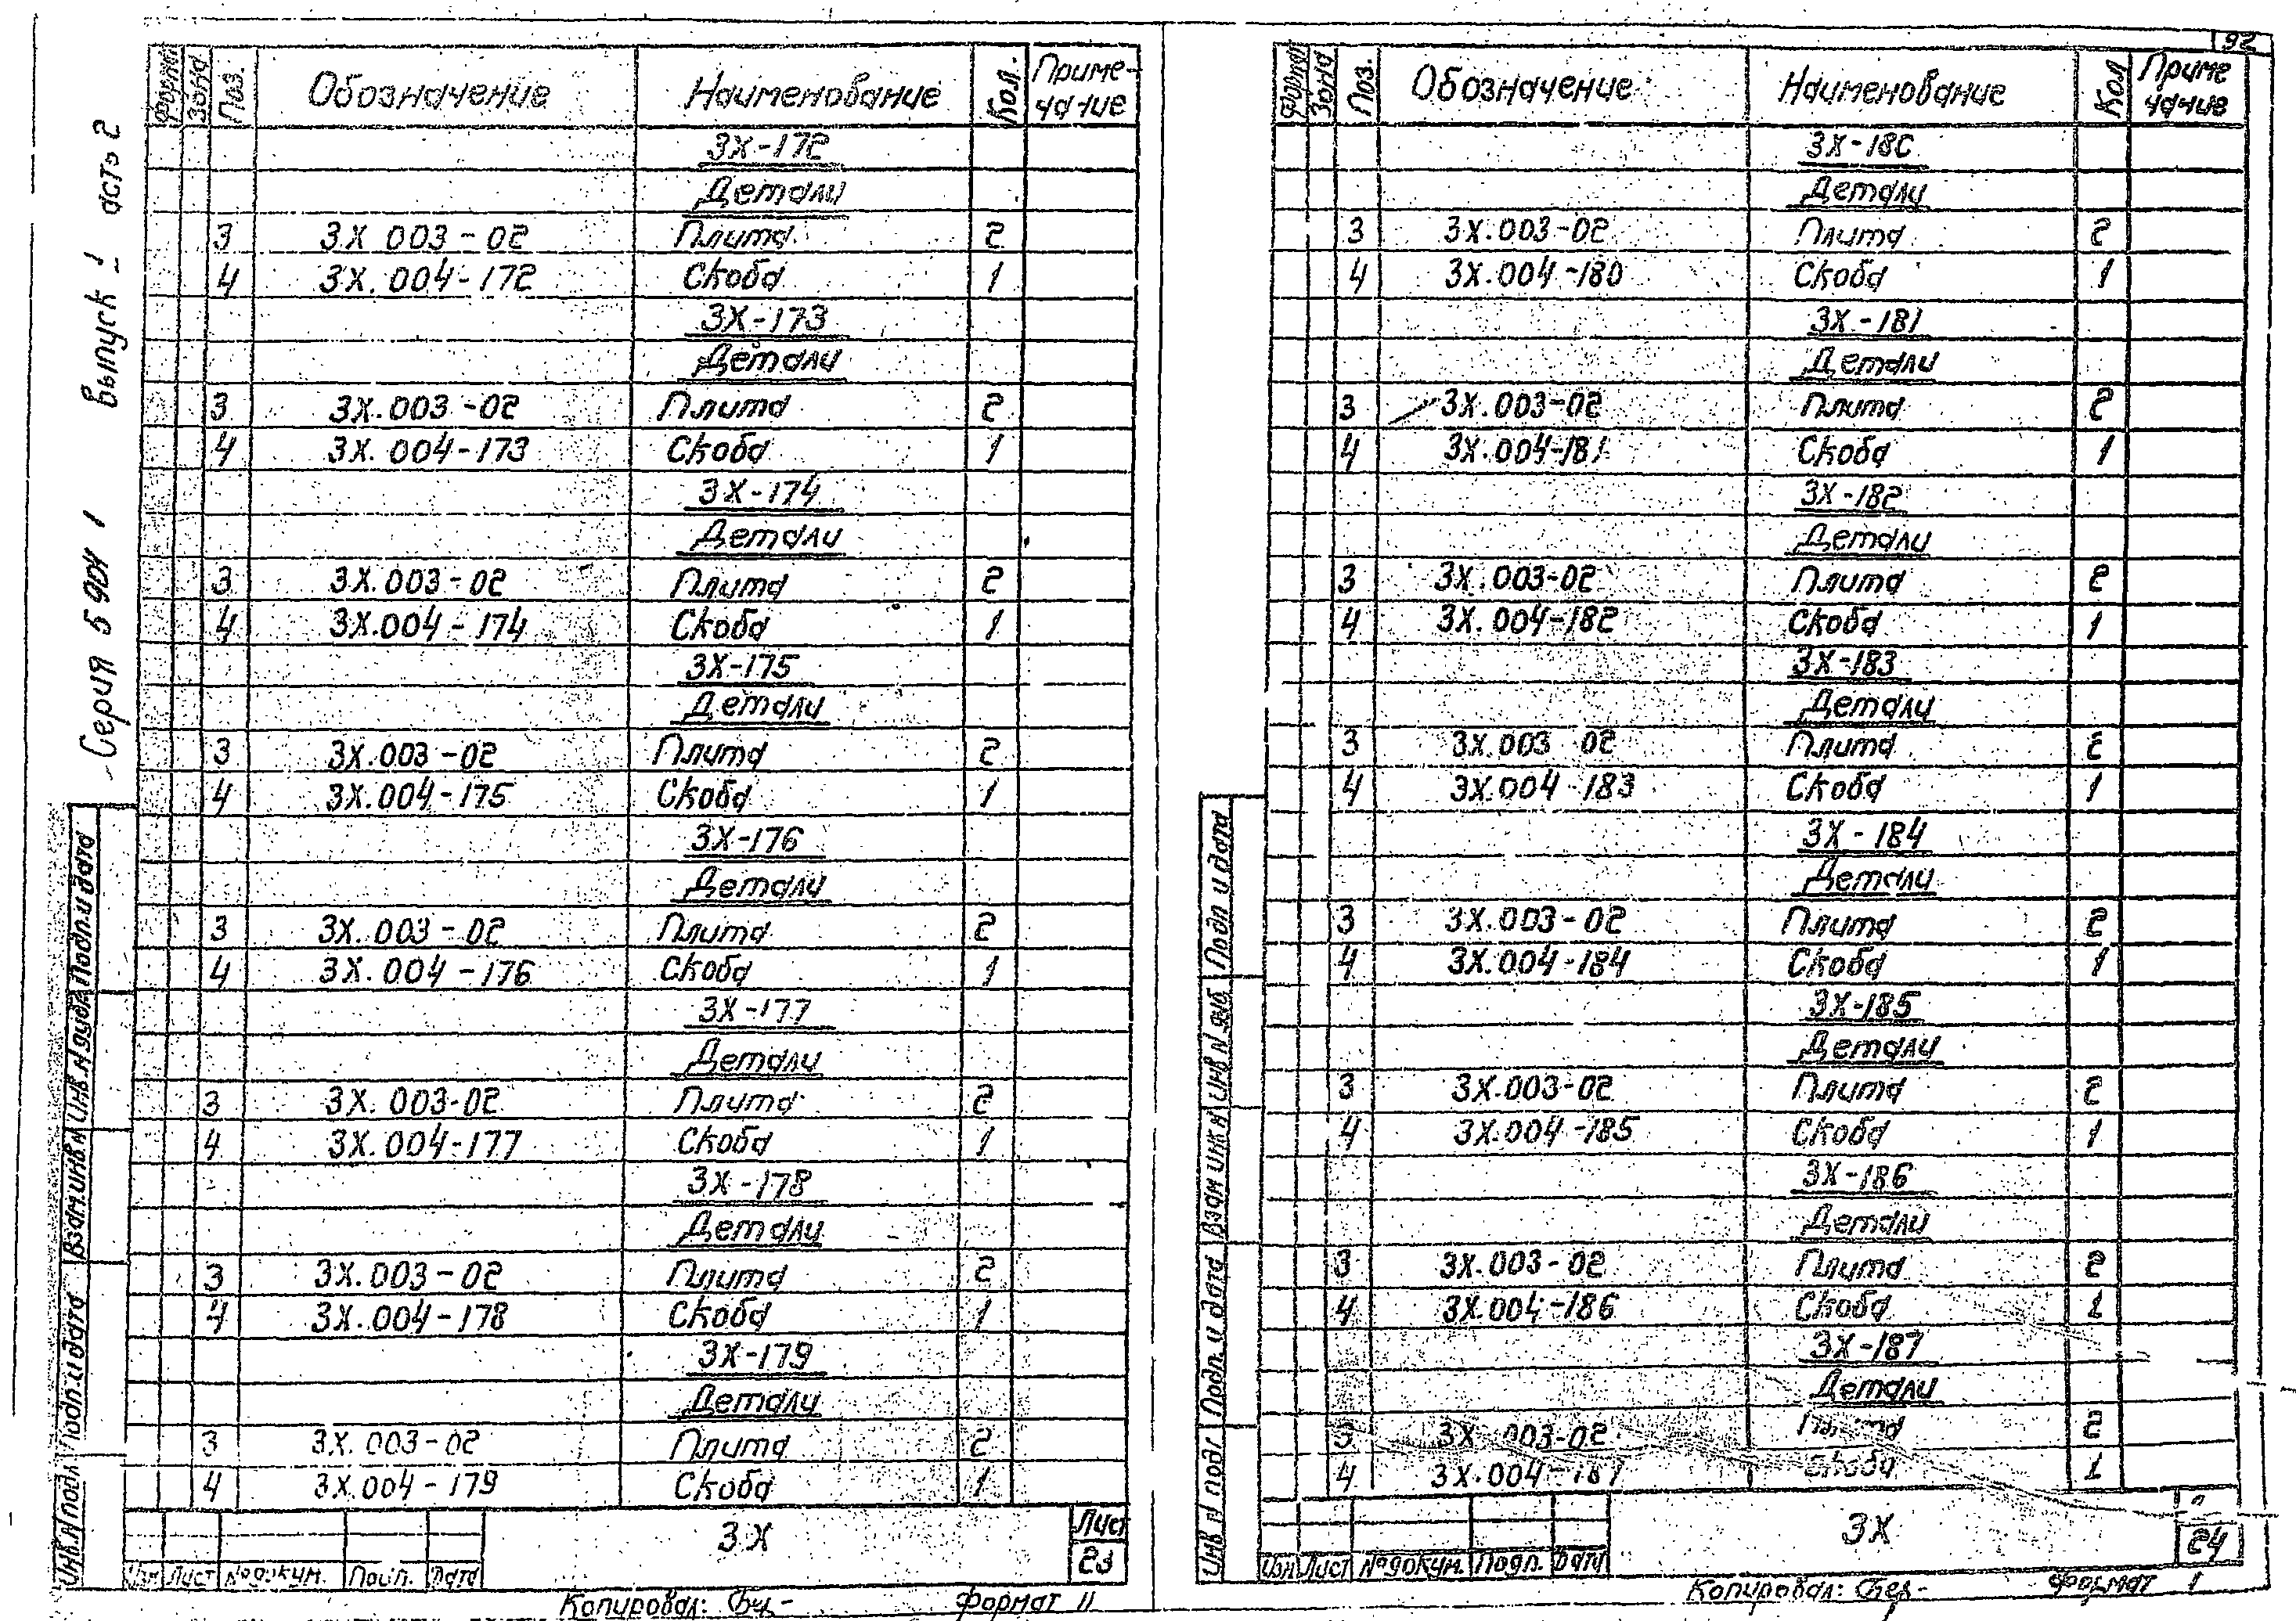 Серия 5 904 1 Выпуск 1 асть 2
Формат Зона Поз. Обозначение Наименование Кол. Приме-
чание
3Х-172
Детали
3 3Х 003-02 Плита 2
4 3Х. 004-172 Скоба 1
3Х-173
Детали
3 3Х.003-02 Плита 2
4 3Х. 004-173 Скоба 1
3Х-174
Детали
3 3Х.003-02 Плита 2
4 3Х.004-174 Скоба 1
3Х-175
Детали
3 3Х.003-02 Плита 2
4 3Х.004-175 Скоба 1
3Х-176
Детали
3 3Х.003-02 Плита 2
4 3Х.004-176 Скоба 1
3Х-177
Детали
3 3Х.003-02 Плита 2
4 3Х.004-177 Скоба 1
3Х-178
Детали
3 3Х.003-02 Плита 2
4 3Х.004-178 Скоба 1
3Х-179
Детали
3 3Х.003-02 Плита 2
4 3Х.004-179 Скоба 1
Инв.N подл Подп.и дата Взам.инв.N Инв.N дубл. Подп.и дата
3Х
Лист
23
Изм Лист №докум. Подп. Дата
Копировал: формат 11
92
Формат Зона Поз. Обозначение Наименование Кол Приме
чание
3Х-180
Детали
3 3Х.003-02 Плита 2
4 3Х.004-180 Скоба 1
3Х-181
Детали
3 3Х.003-02 Плита 2
4 3Х.004-181 Скоба 1
3Х-182
Детали
3 3Х.003-02 Плита 2
4 3Х.004-182 Скоба 1
3Х-183
Детали
3 3Х.003 02 Плита 2
4 3Х.004-183 Скоба 1
3Х-184
Детали
3 3Х.003-02 Плита 2
4 3Х.004-184 Скоба 1
3Х-185
Детали
3 3Х.003-02 Плита 2
4 3Х.004-185 Скоба 1
3Х-186
Детали
3 3Х.003-02 Плита 2
4 3Х.004-186 Скоба 1
3Х-187
Детали
3 3Х 003-02 Плита 2
4 3Х.004-187 Скоба 1
Инв N подл Подп. и дата Взам инв N Инв N дуб Подп и дата
3Х
24
Изм Лист №докум. Подп. Дата
Копировал: Формат 1